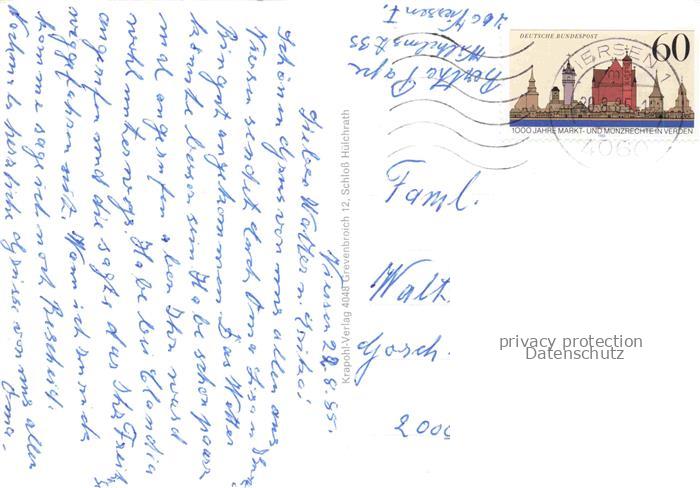 Viersen 28.8.85.
Lieber Walter u. Gritel
Schöönen Gruss von uns allen aus
Viersen sendet Euch Oma. Lisa u.
Bin gut angekommen. Das Wetter
könnte besser sein. Habe schon paar
mal angerufen aber Ihr ward
wohl unterwegs. Habe bei Claudia
angerufen und die sagte das Ihr Freitag
weggefahren seit. Wann ich zurück
komme sage ich noch Bescheid.
Nochmals herzliche Grüsse von uns allen
Oma.
Krapohl-Verlag 4048 Grevenbroich 12, Schloß Hülchrath
Berthe Pape
Wilhelmstr 35
4060 Viersen I.
DEUTSCHE BUNDESPOST
60
1000 JAHRE MARKT- UND MÜNZRECHTE IN VERDEN
VIERSEN 1
4060
Faml.
Walt.
Gosch.
2000
privacy protection
Datenschutz